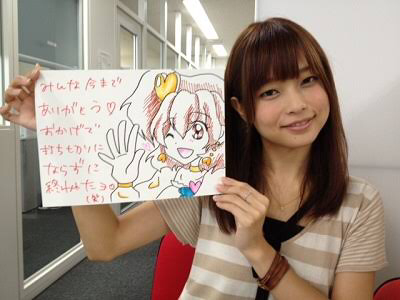 みんな今まで
ありがとう♡
おかげで
打ち切りに
ならずに
終われたヨ。
(笑)